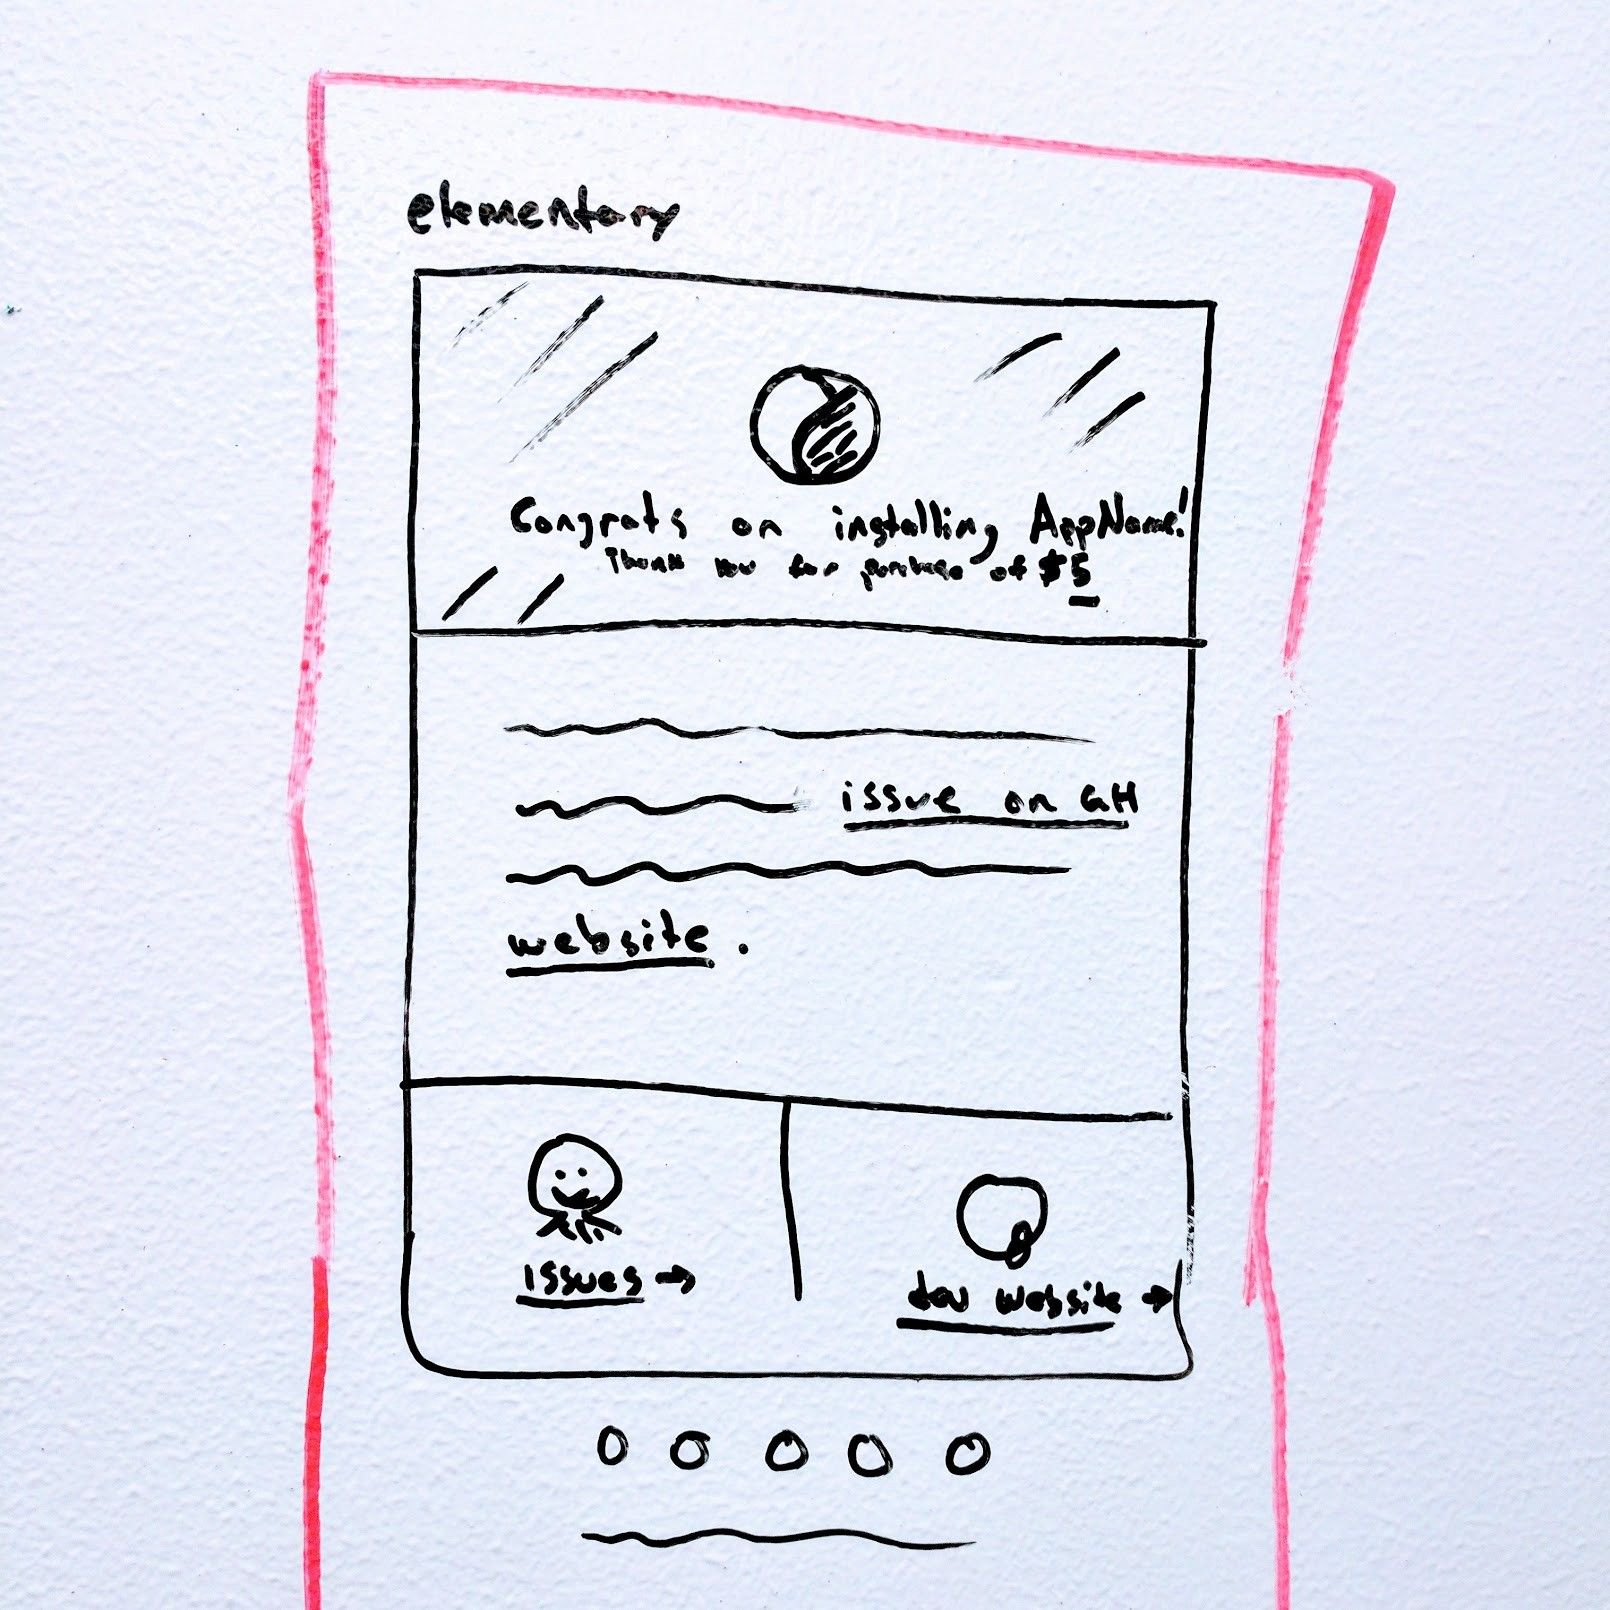 elementary
Congrats on installing AppName!
Thank you for purchase of $5
issue on GH
website.
issues →
dev website →